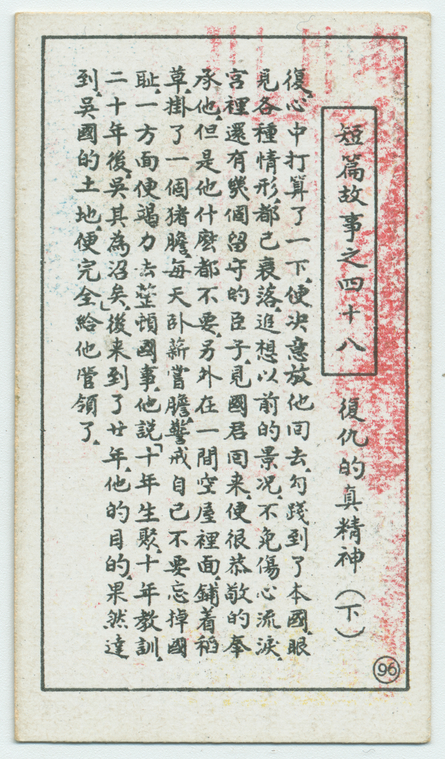 短篇故事之四十八 復仇的真精神（下）
復、心中打算了一下、便决意放他囘去、勾踐到了本國、眼
見各種情形、都已衰落、追想以前的景况、不免傷心流淚、
宮裡還有幾個留守的臣子、見國君囘來、便很恭敬的奉
承他、但是他什麼都不要、另外在一間空屋裡面、鋪着稻
草、掛了一個猪膽、每天卧薪嘗膽、警戒自己不要忘掉國
耻、一方面便竭力去整頓國事、他説「十年生聚、十年教訓、
二十年後、吳其為沼矣」、後来到了廿年、他的目的果然達
到、吳國的土地、便完全給他管領了、
96